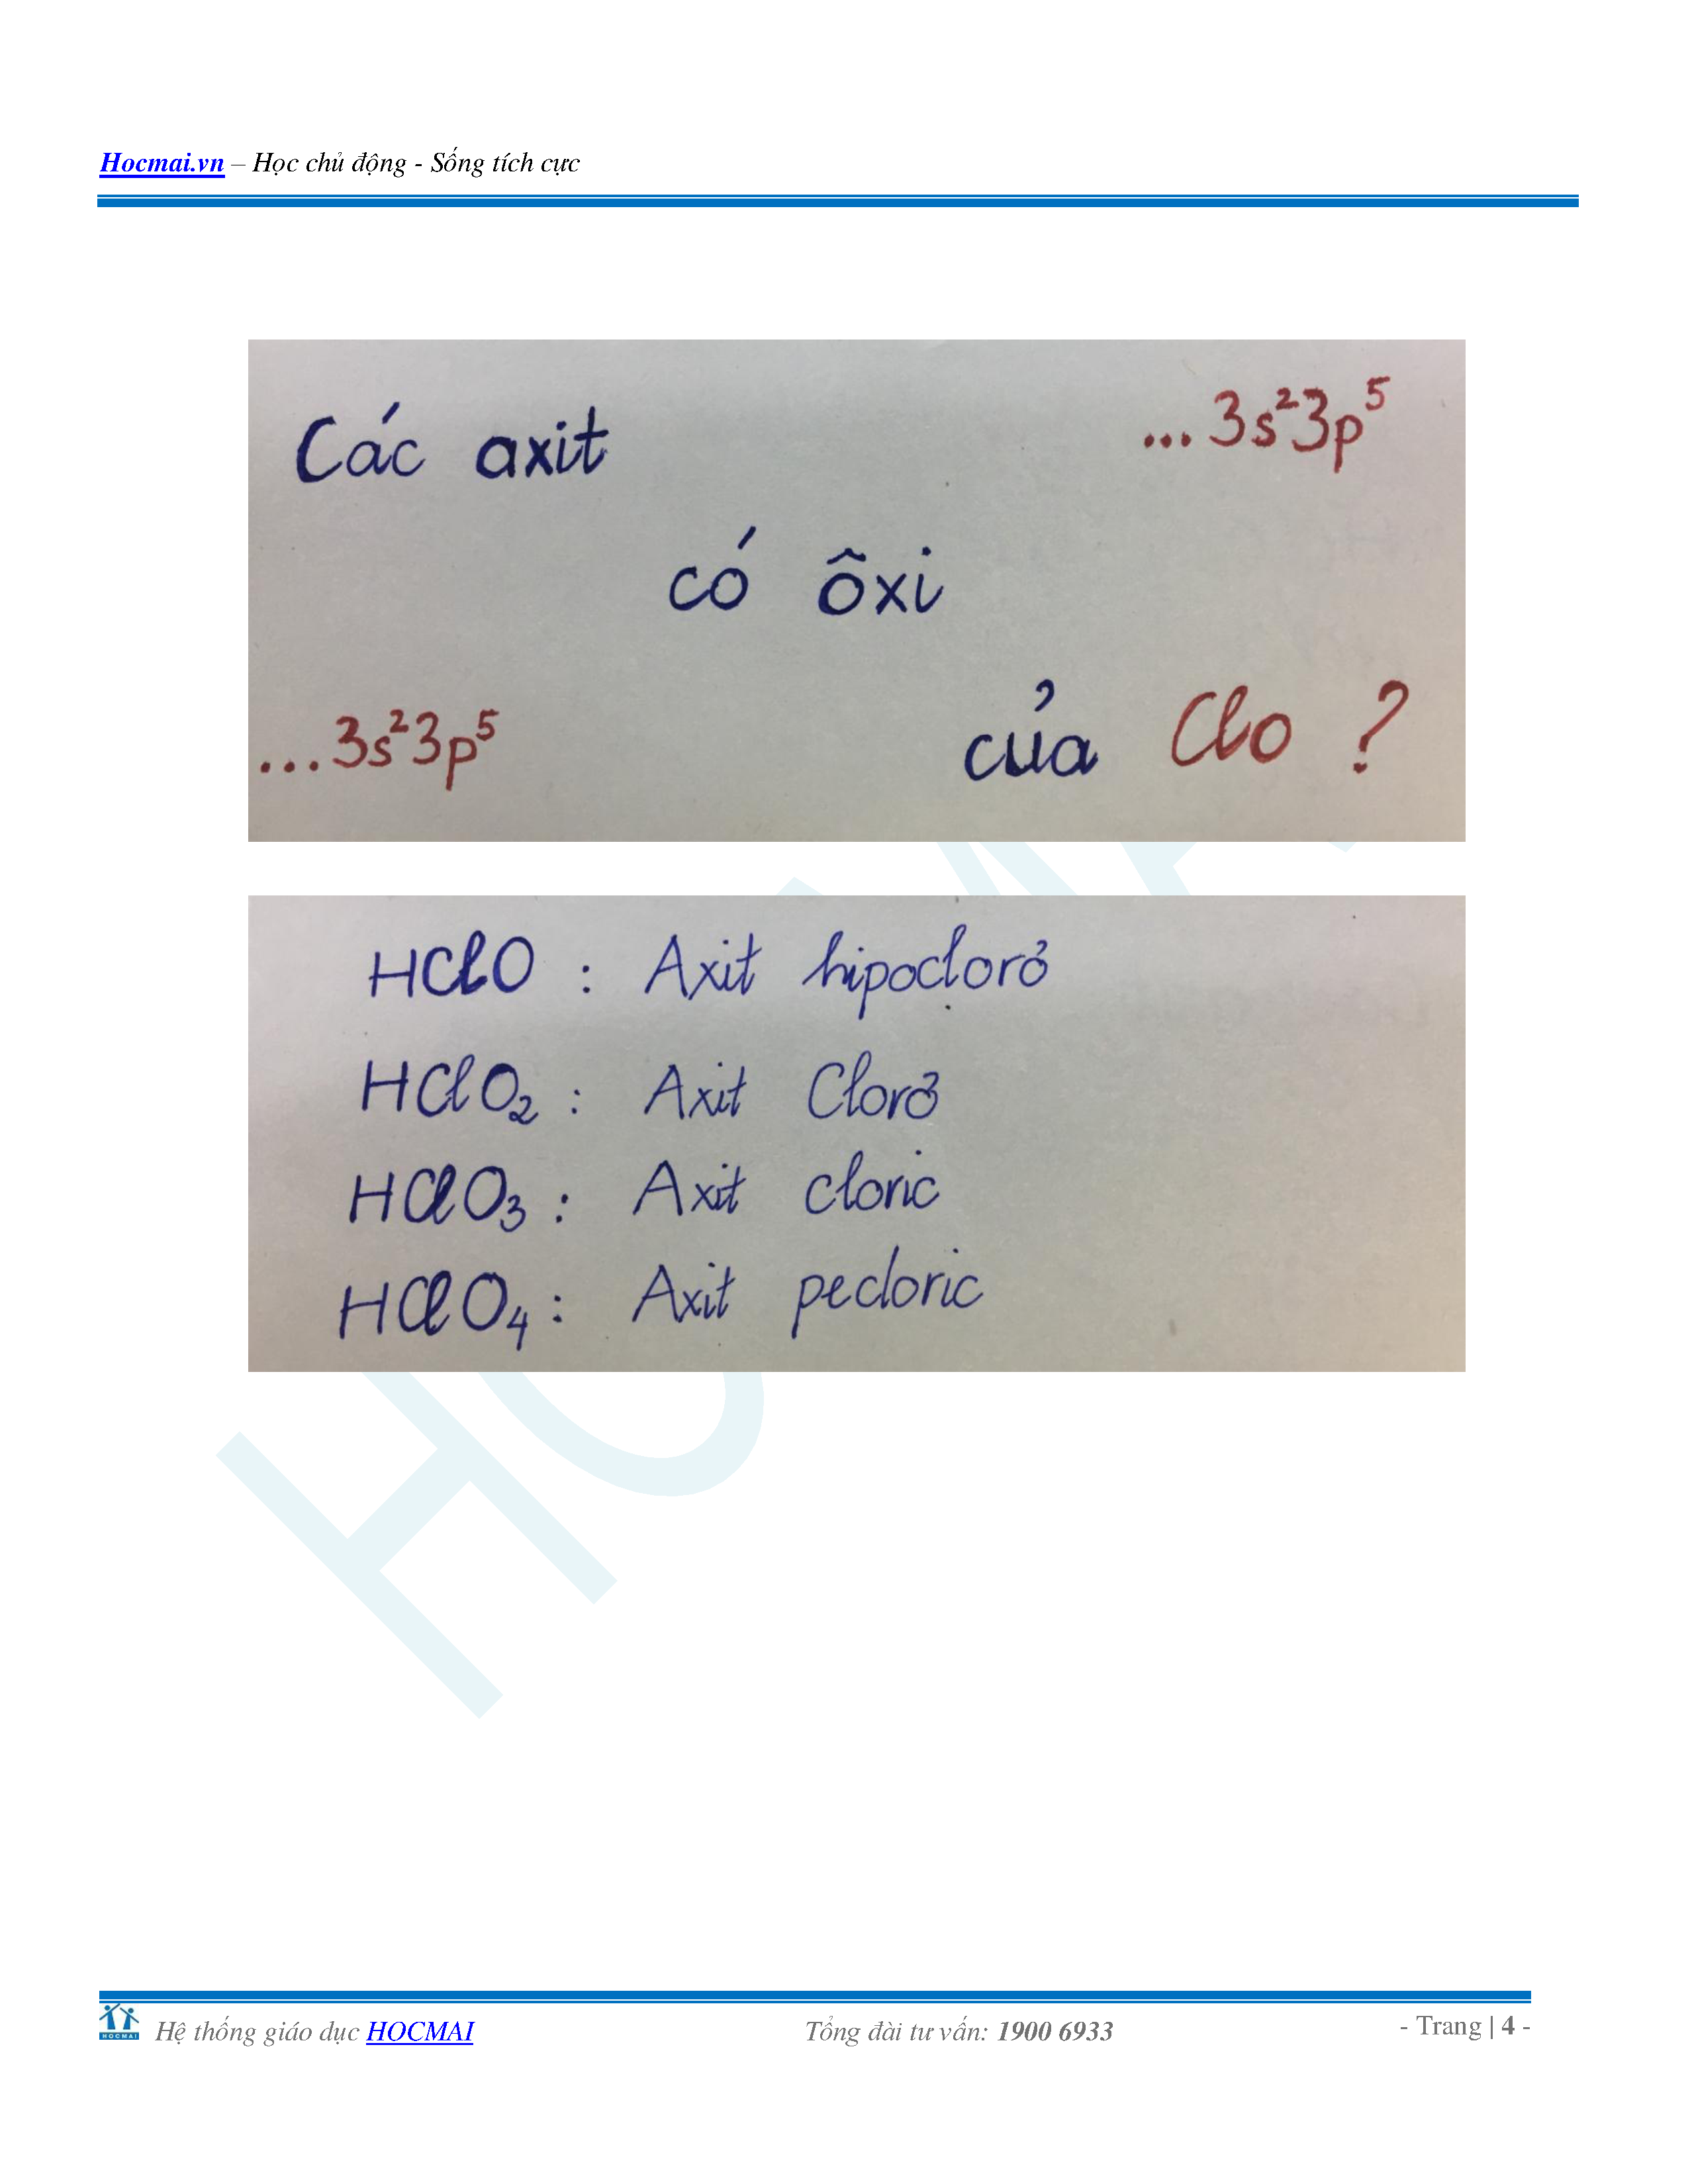 Hocmai.vn – Học chủ động - Sống tích cực
Các axit
...3s²3p⁵
có ôxi
...3s²3p⁵
của Clo ?
HClO : Axit hipoclorơ
HClO₂ : Axit Clorơ
HClO₃ : Axit cloric
HClO₄ : Axit pecloric
HOCMAI
Hệ thống giáo dục HOCMAI
Tổng đài tư vấn: 1900 6933
- Trang | 4 -